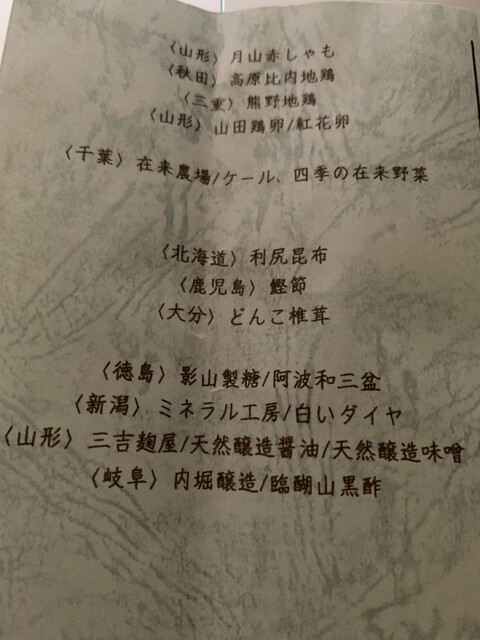 〈山形〉月山赤しゃも
〈秋田〉高原比内地鶏
〈三重〉熊野地鶏
〈山形〉山田鶏卵/紅花卵
〈千葉〉在来農場/ケール、四季の在来野菜
〈北海道〉利尻昆布
〈鹿児島〉鰹節
〈大分〉どんこ椎茸
〈徳島〉影山製糖/阿波和三盆
〈新潟〉ミネラル工房/白いダイヤ
〈山形〉三吉麹屋/天然醸造醤油/天然醸造味噌
〈岐阜〉内堀醸造/臨醐山黒酢